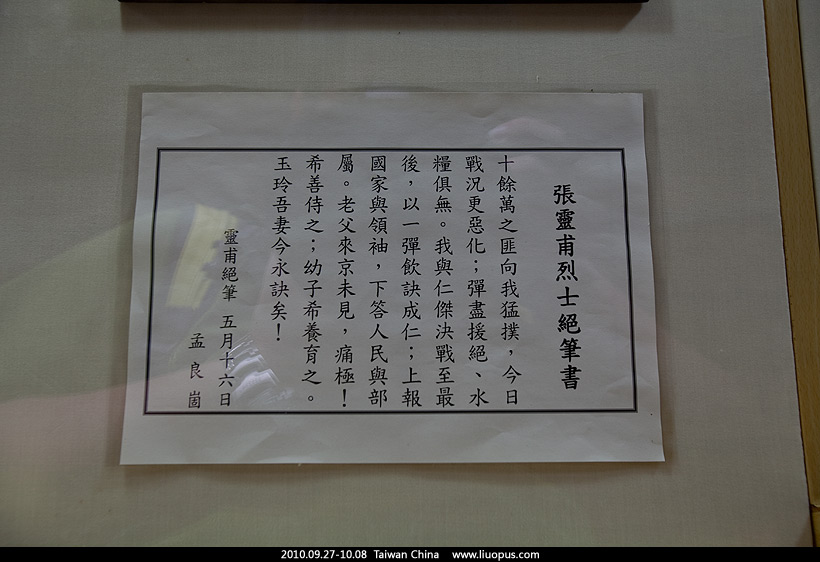 張靈甫烈士絕筆書
十餘萬之匪向我猛撲，今日
戰況更惡化；彈盡援絕、水
糧俱無。我與仁傑決戰至最
後，以一彈飲訣成仁；上報
國家與領袖，下答人民與部
屬。老父來京未見，痛極！
希善侍之；幼子希養育之。
玉玲吾妻今永訣矣！
靈甫絕筆 五月十六日
孟良崮
2010.09.27-10.08 Taiwan China www.liuopus.com